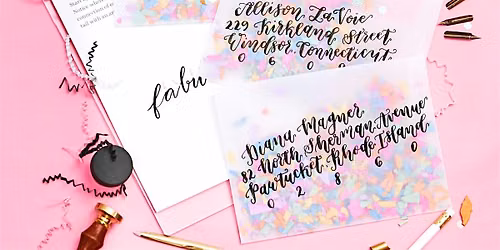 Allison LaVoie
229 Kirkland Street
Windsor, Connecticut
0 6 0
fabu
Diana Magner
82 North Sherman Avenue
Pawtucket, Rhode Island
0 2 8 6 0